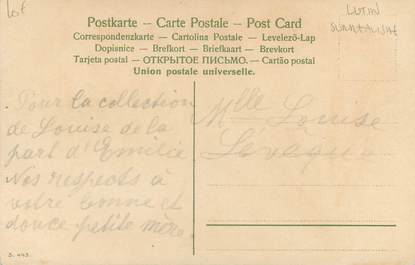 Lot
LUTIN
SURREALISME
Postkarte – Carte Postale – Post Card
Correspondenzkarte – Cartolina Postale – Levelező-Lap
Dopisnice – Brefkort – Briefkaart – Brevkort
Tarjeta postal – ОТКРЫТОЕ ПИСЬМО. – Cartão postal
Union postale universelle.
Pour la collection
de Louise de la
part d'Emilie
Nos respects à
votre bonne et
douce petite mère.
Mlle Louise
Lévêque
S. 443.